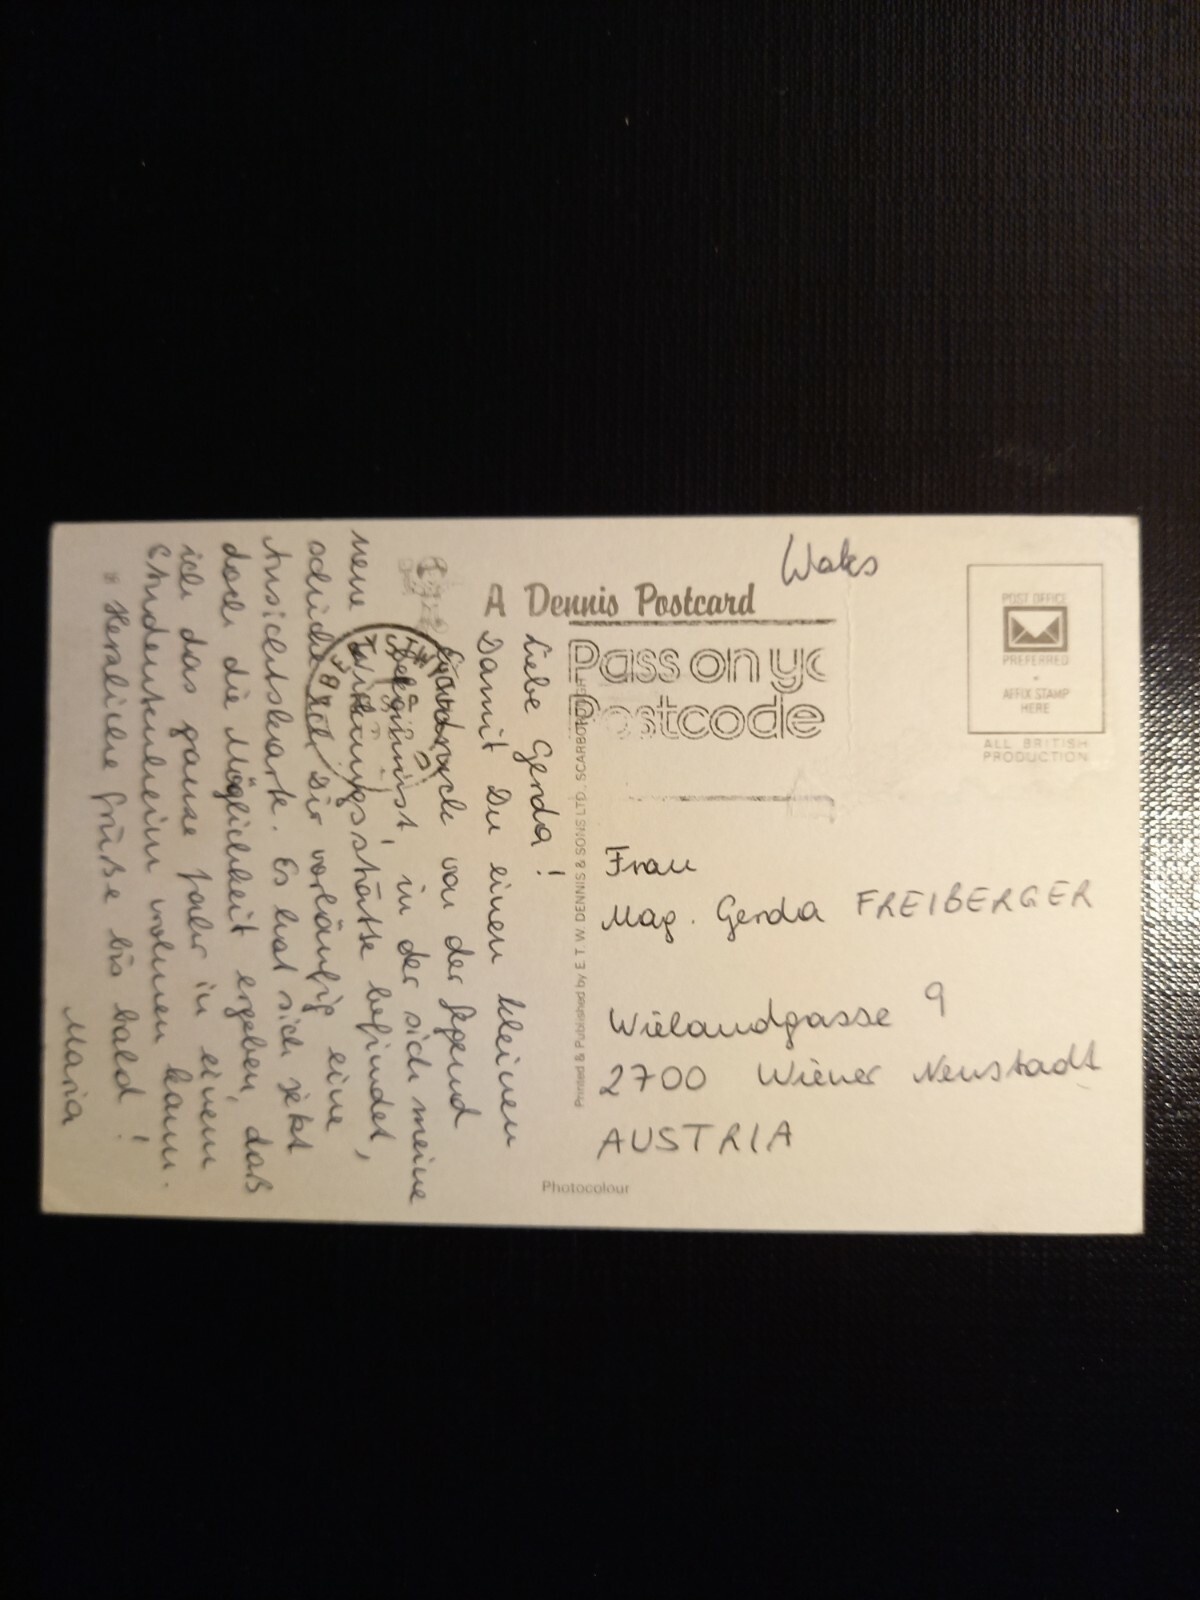 Wales
POST OFFICE
PREFERRED
AFFIX STAMP
HERE
ALL BRITISH
PRODUCTION
A Dennis Postcard
Pass on yo
Postcode
Liebe Gerda!
Damit Du einen kleinen
Eindruck von der Gegend
bekommst, in der sich meine
neue Wirkungsstätte befindet,
schicke ich Dir vorläufig eine
Ansichtskarte. Es hat sich jetzt
doch die Möglichkeit ergeben, daß
ich das ganze Jahr in einem
Studentenheim wohnen kann.
Herzliche Grüße bis bald!
Maria
Printed & Published by E. T. W. DENNIS & SONS LTD., SCARBOROUGH
Frau
Mag. Gerda FREIBERGER
Wielandgasse 9
2700 Wiener Neustadt
AUSTRIA
Photocolour